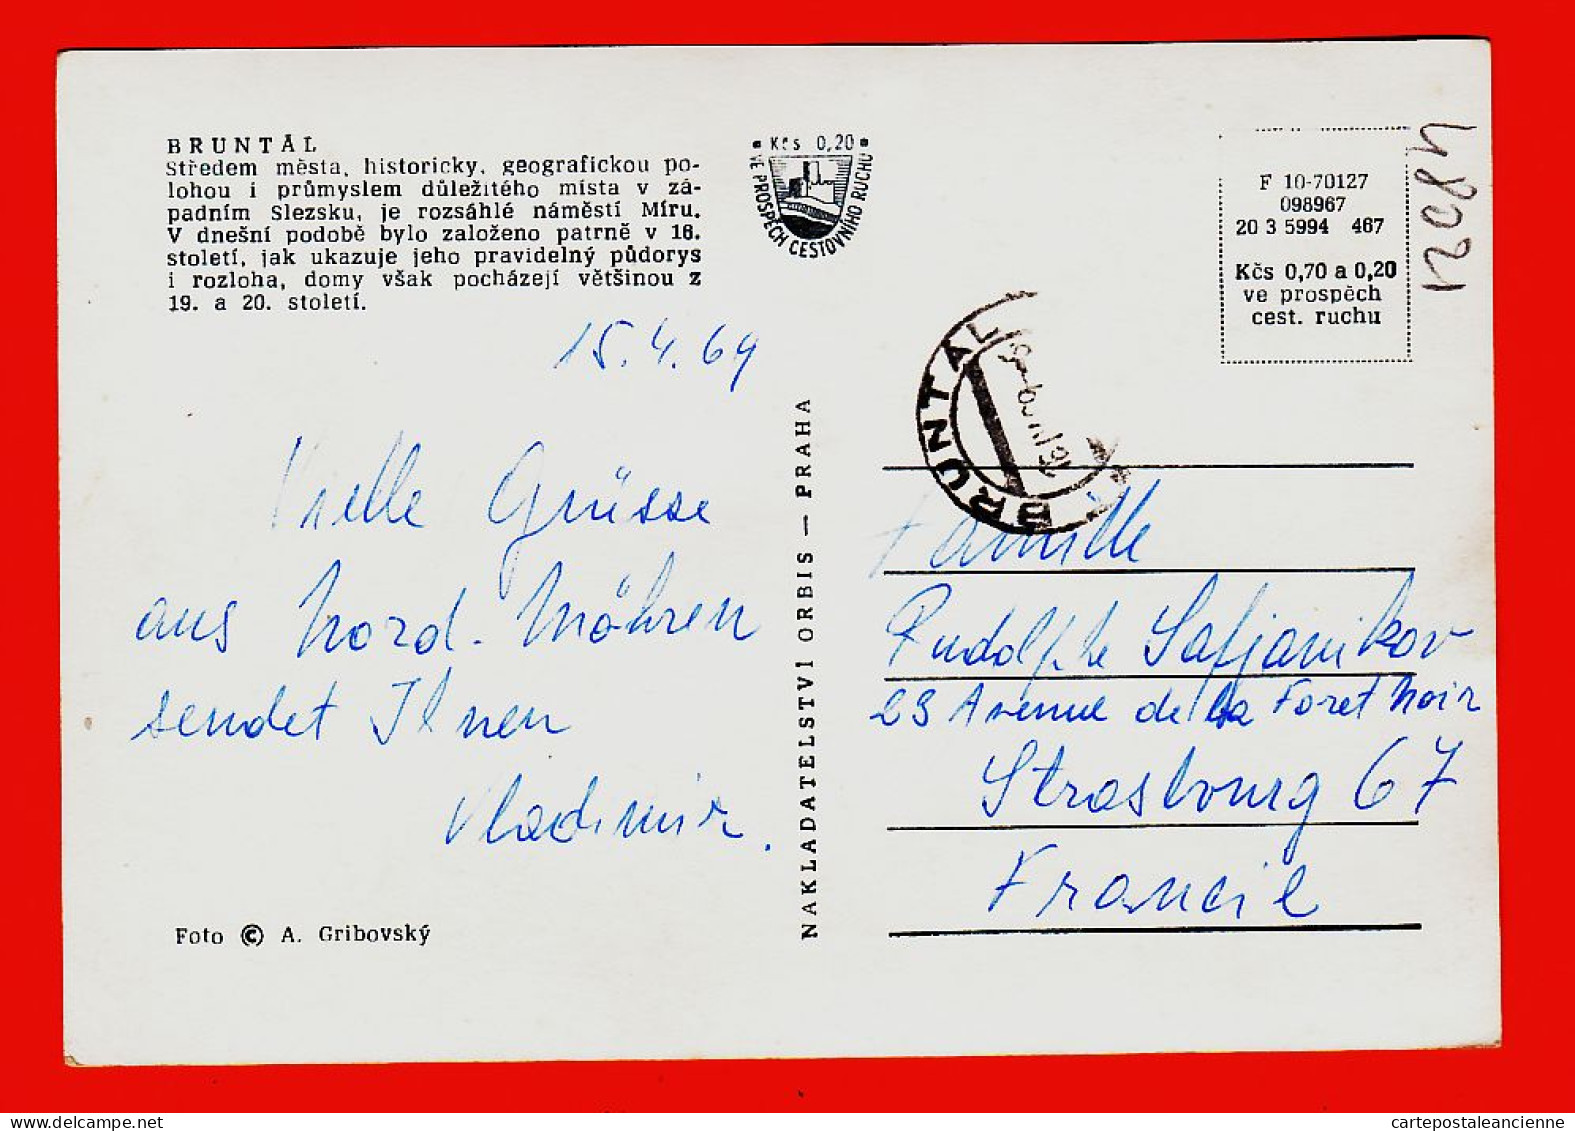 BRUNTÁL
Středem města, historicky, geografickou po-
lohou i průmyslem důležitého místa v zá-
padním Slezsku, je rozsáhlé náměstí Míru.
V dnešní podobě bylo založeno patrně v 16.
století, jak ukazuje jeho pravidelný půdorys
i rozloha, domy však pocházejí většinou z
19. a 20. století.
Kčs 0,20
VE PROSPĚCH CESTOVNÍHO RUCHU
F 10-70127
098967
20 3 5994 467
Kčs 0,70 a 0,20
ve prospěch
cest. ruchu
12084
BRUNTÁL
15.4.69
Vielle Grüsse
aus Nord. Mähren
sendet Ihnen
Vladimir.
Foto © A. Gribovský
NAKLADATELSTVÍ ORBIS — PRAHA
Famille
Rudolphe Safjanikov
23 Avenue de la Foret Noir
Strasbourg 67
Francie
cartepostaleancienne.com